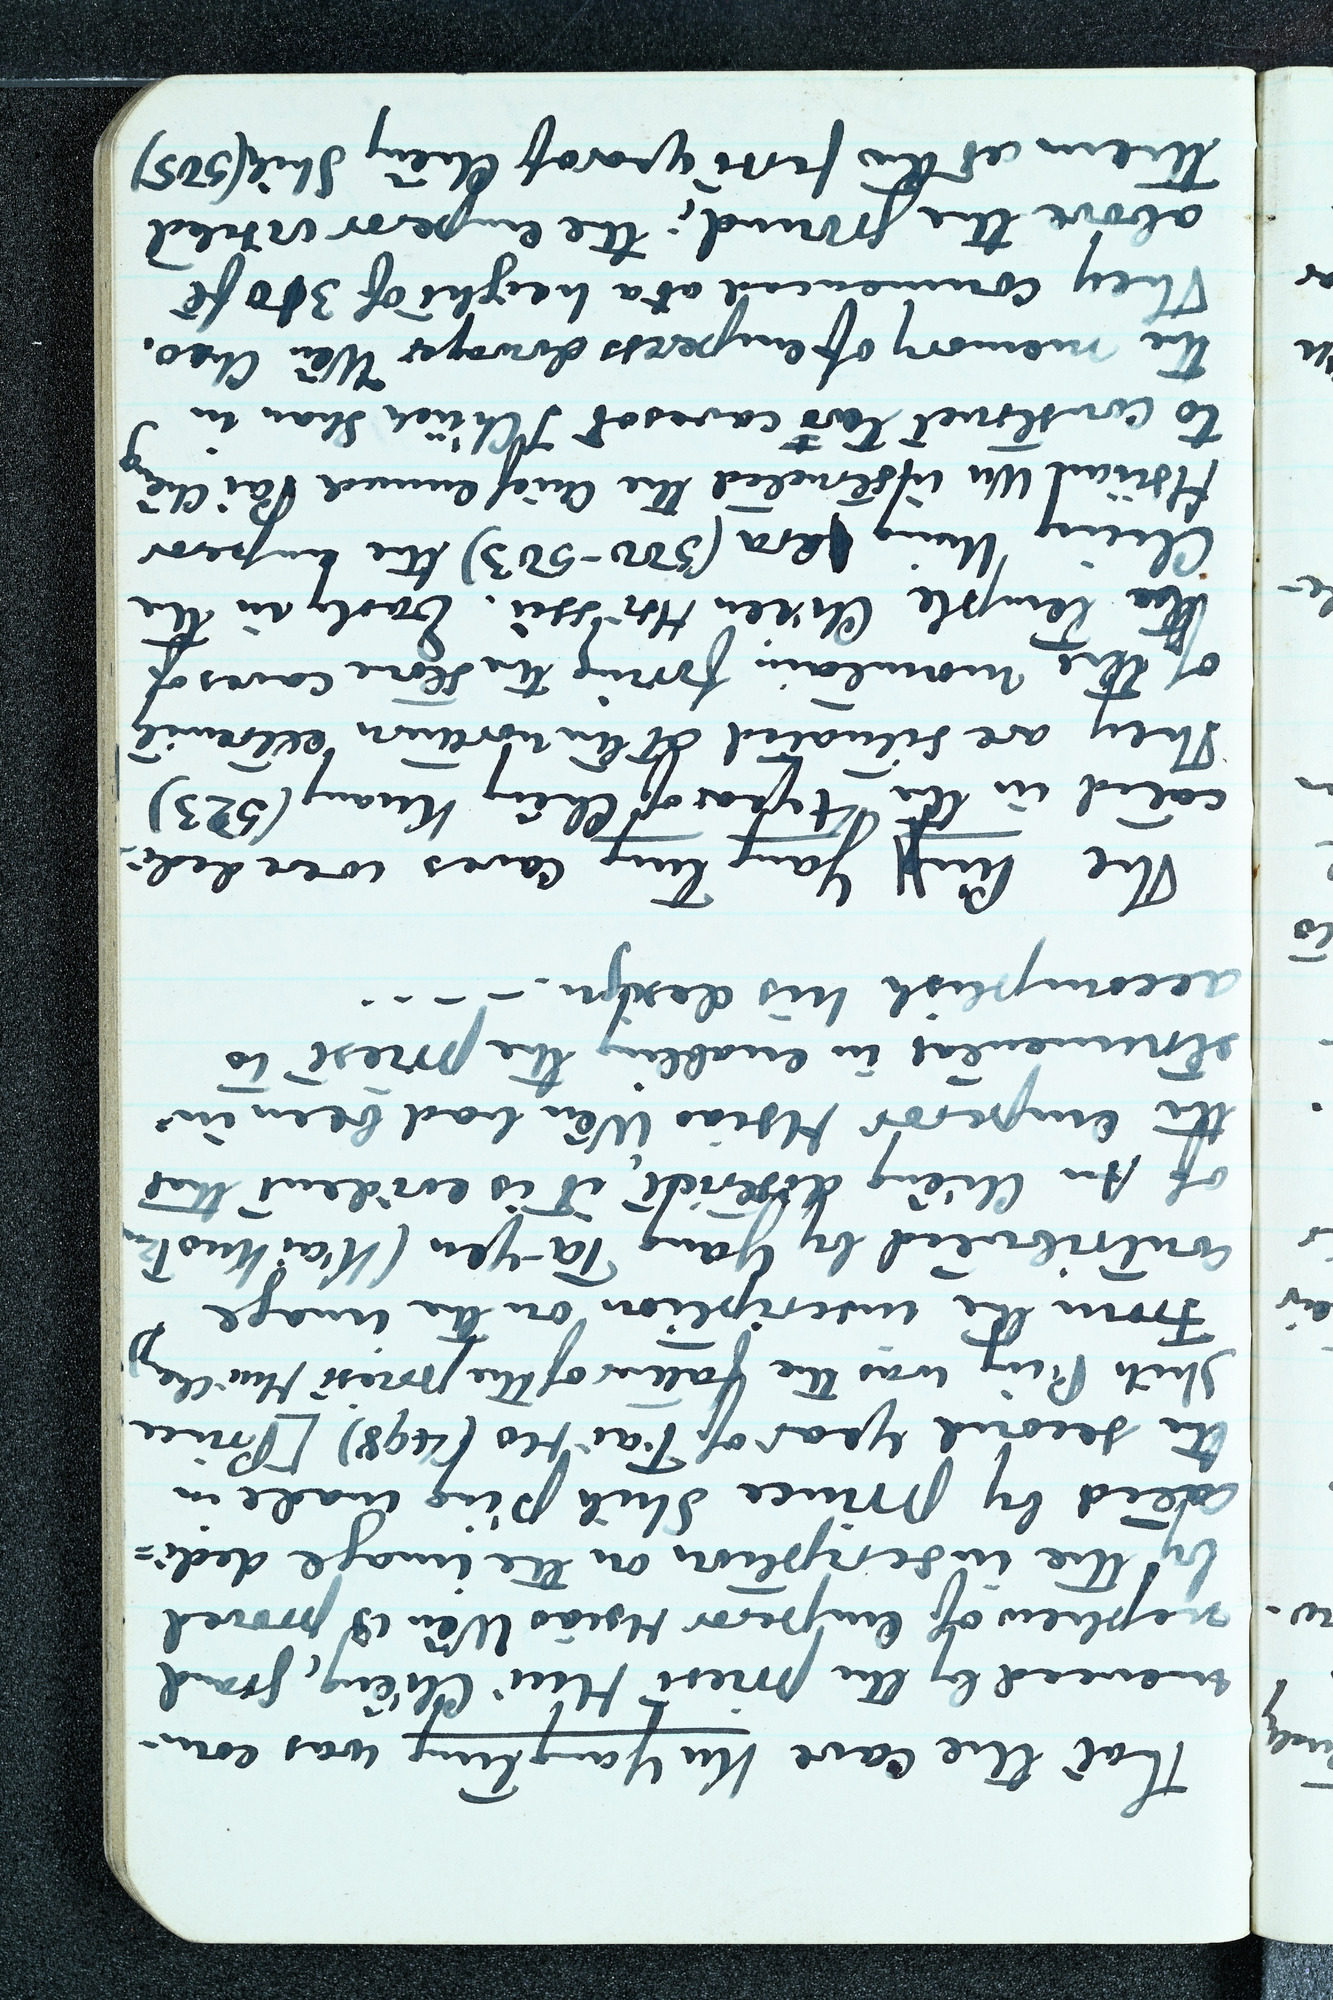 That the cave Ku Yang tung was com-
menced by the priest Hui Ch'êng, grand
nephew of Emperor Hsiao Wên is proved
by the inscription on the image dedi=
cated by prince Shih p'ing made in
the second year of T'ai Ho (498) [Prince
Shih P'ing was the father of the priest Hui Ch'êng]
From the inscription on the image
contributed by Yang Ta-yen (K'ai Kuo Tzu
of An Ch'êng district, it is evident that
the emperor Hsiao Wên had been in-
strumental in enabling the priest to
accomplish his design. - - - - -
The Pin Yang tung caves were dedi-
cated in the 4 year of Chêng Kuang (523)
They are situated at the northern extremit
of the mountain, facing the stone caves of
the temple Ch'ien Hsi ssu. Early in the
Ching Ming era (500-503) the Emperor
Hsüan Wu instructed the chief eunuch Pai Chêng
to construct two caves at I Ch'üeh Shan in
the memory of empress dowager Wên Chao.
They commenced at a height of 310 ft
above the ground; the emperor visited
them at the first year of Chêng Shih (505)